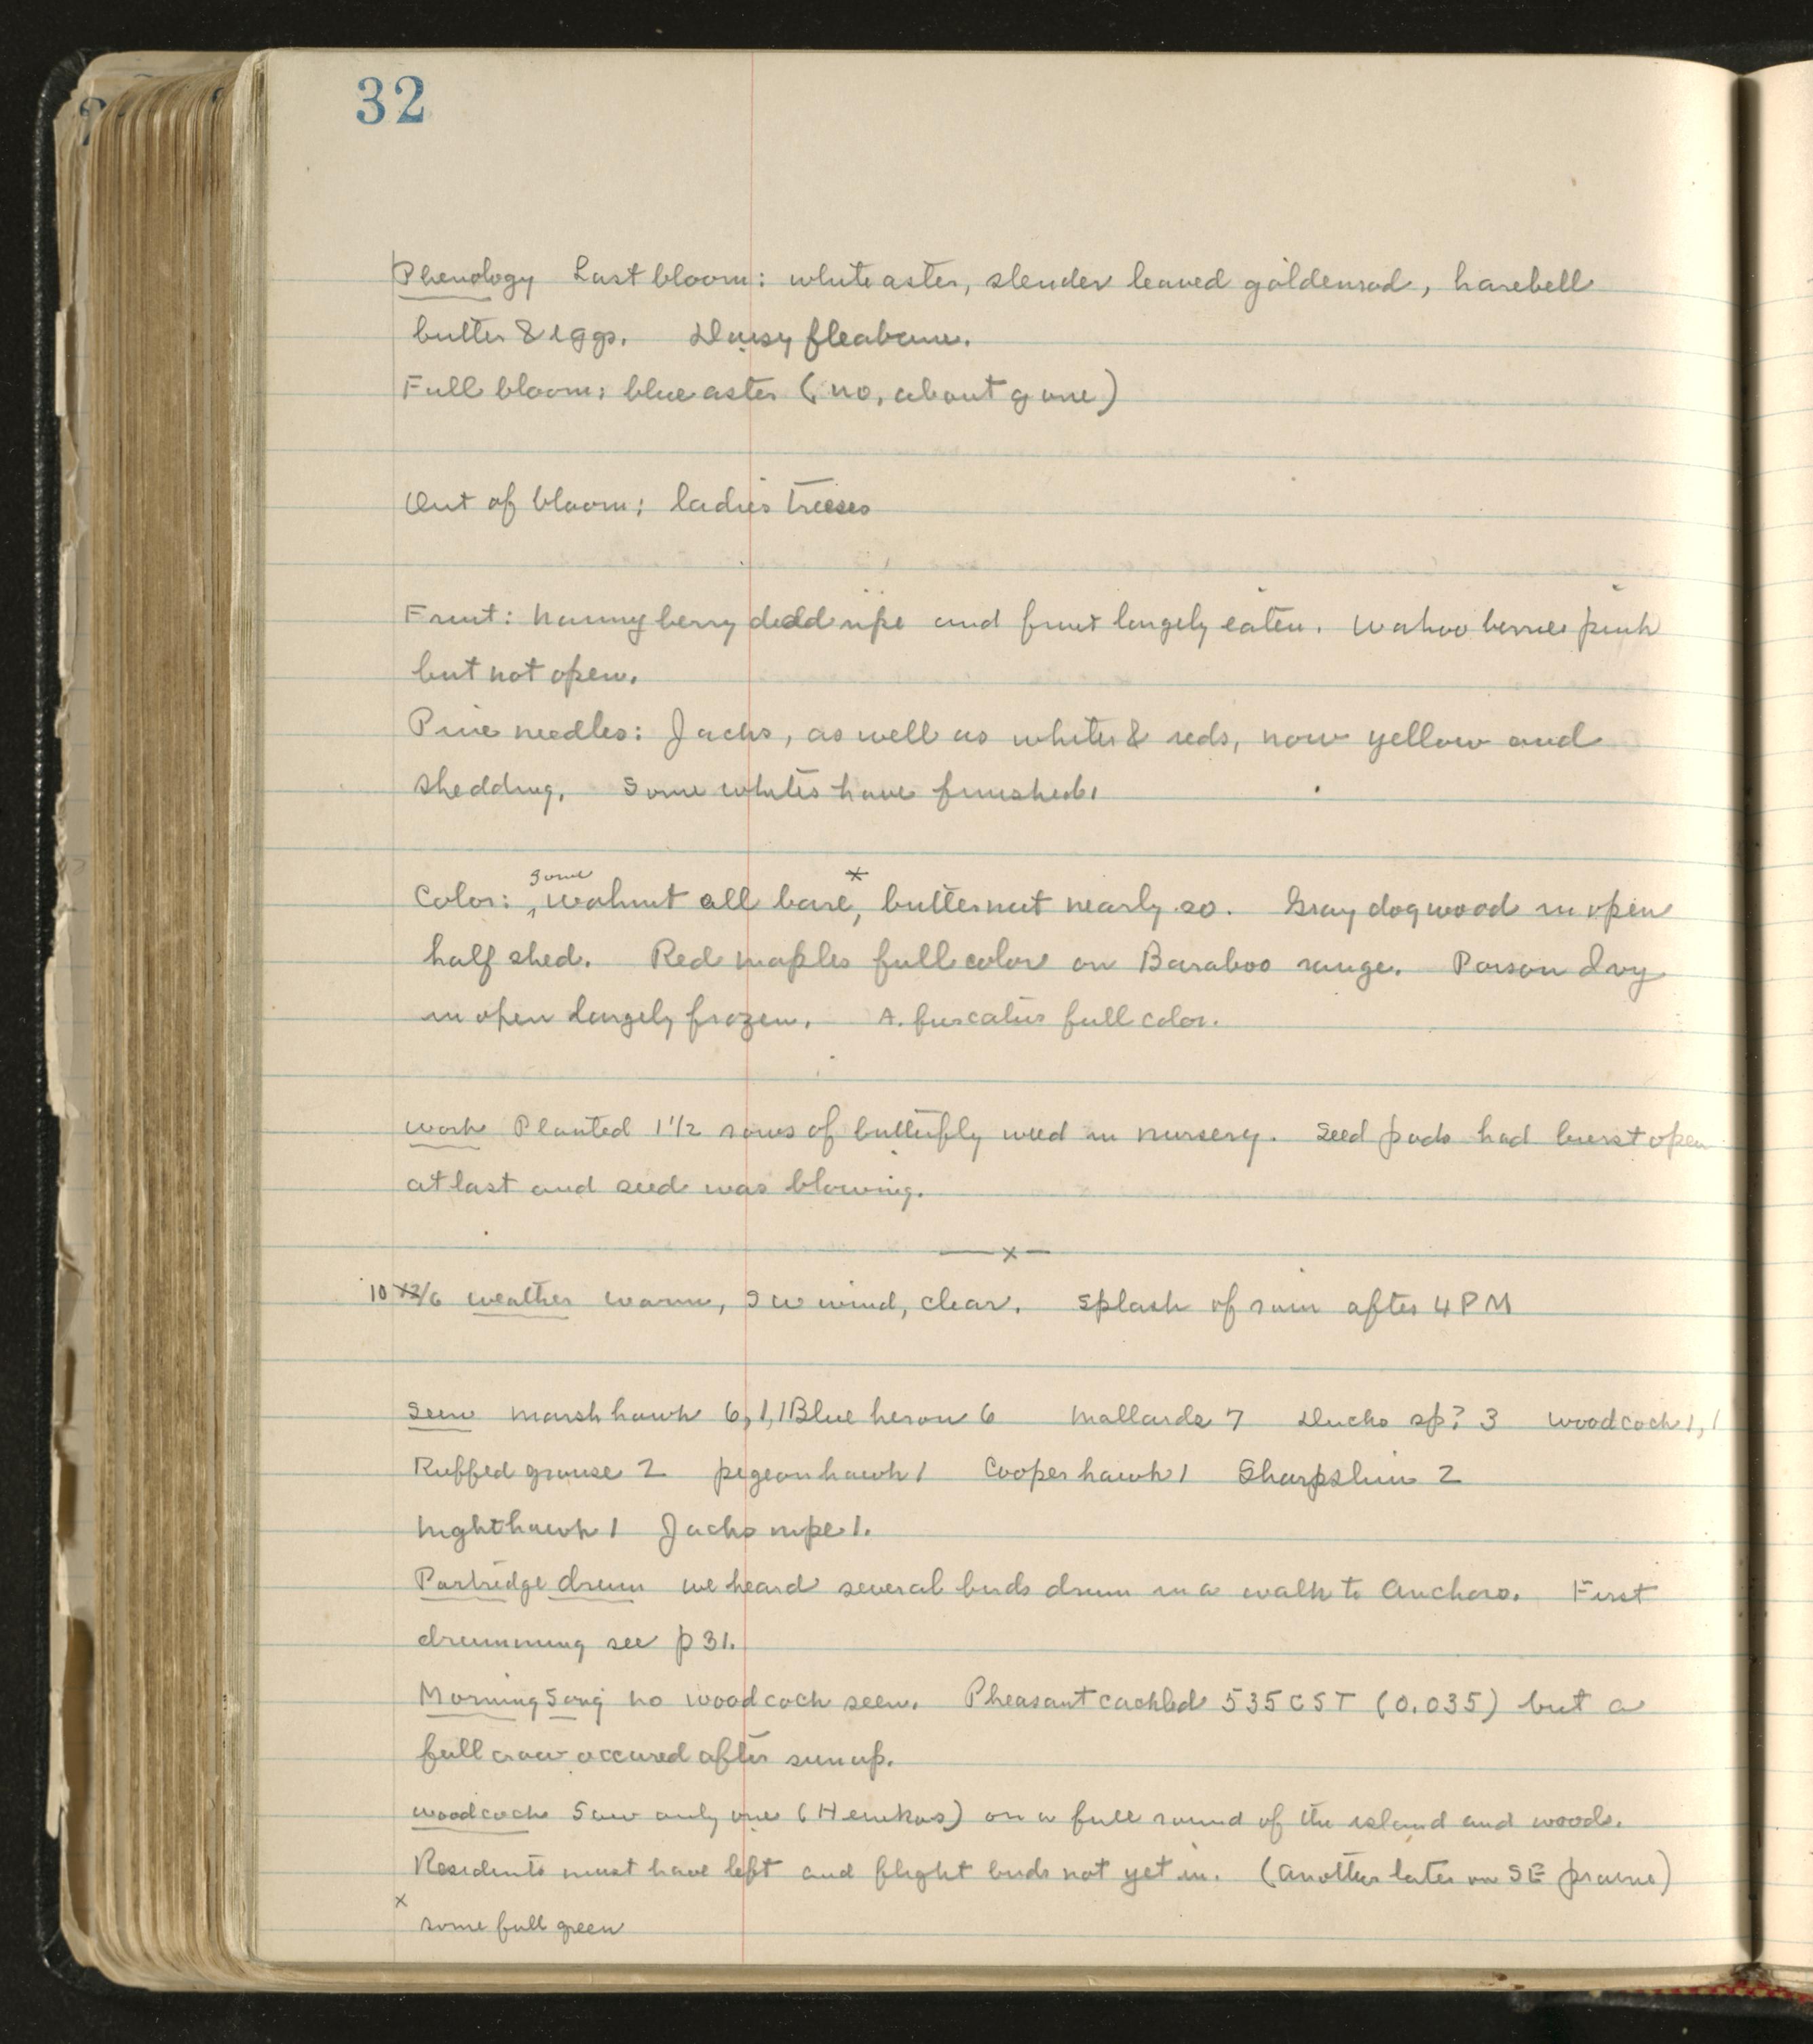 32
Phenology Last bloom: white aster, slender leaved goldenrod, harebell
butter & eggs. Daisy fleabane.
Full bloom: blue aster (no, about gone)
Out of bloom: ladies tresses
Fruit: Nannyberry dead ripe and fruit largely eaten. Wahoo berries pink
but not open.
Pine needles: Jacks, as well as whites & reds, now yellow and
shedding. Some whites have finished.
Color: some walnut all bare x, butternut nearly so. Gray dogwood in open
half shed. Red maples full color on Baraboo range. Poison Ivy
in open largely frozen. A. furcatus full color.
Work Planted 1 1/2 rows of butterfly weed in nursery. Seed pods had burst open
at last and seed was blowing.
x
10/6 Weather warm, SW wind, clear. Splash of rain after 4 PM
Seen marsh hawk 6, 1, 1 Blue heron 6 Mallards 7 Ducks sp? 3 Woodcock 1, 1
Ruffed grouse 2 pigeon hawk 1 Cooper hawk 1 Sharpshin 2
Nighthawk 1 Jacksnipe 1.
Partridge drum we heard several birds drum in a walk to Anchors. First
drumming see p 31.
Morning Song no woodcock seen. Pheasant cackled 535 CST (0.035) but a
full crow occured after sunup.
Woodcock Saw only one (Hemkas) on a full round of the island and woods.
Residents must have left and flight birds not yet in. (Another later on SE prairie)
x
some full green